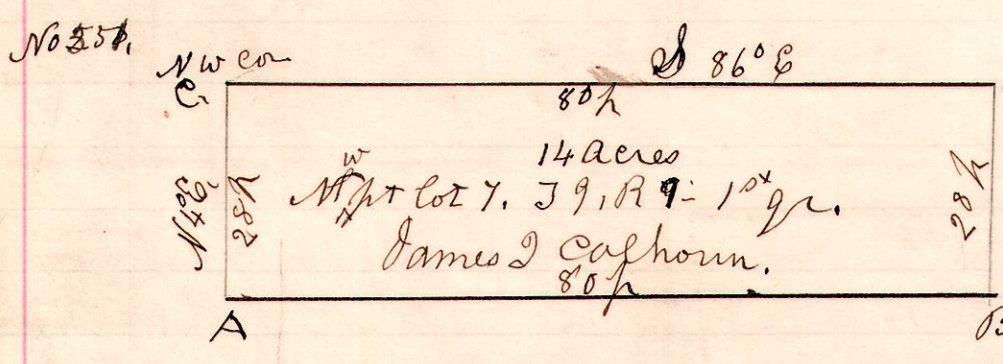 No 551.
N W Cor
S 86° E
C
80 p
14 acres
NW pt lot 7. T 9, R 9 - 1st qr.
James J Calhoun.
80 p
28 p
28 p
A
B